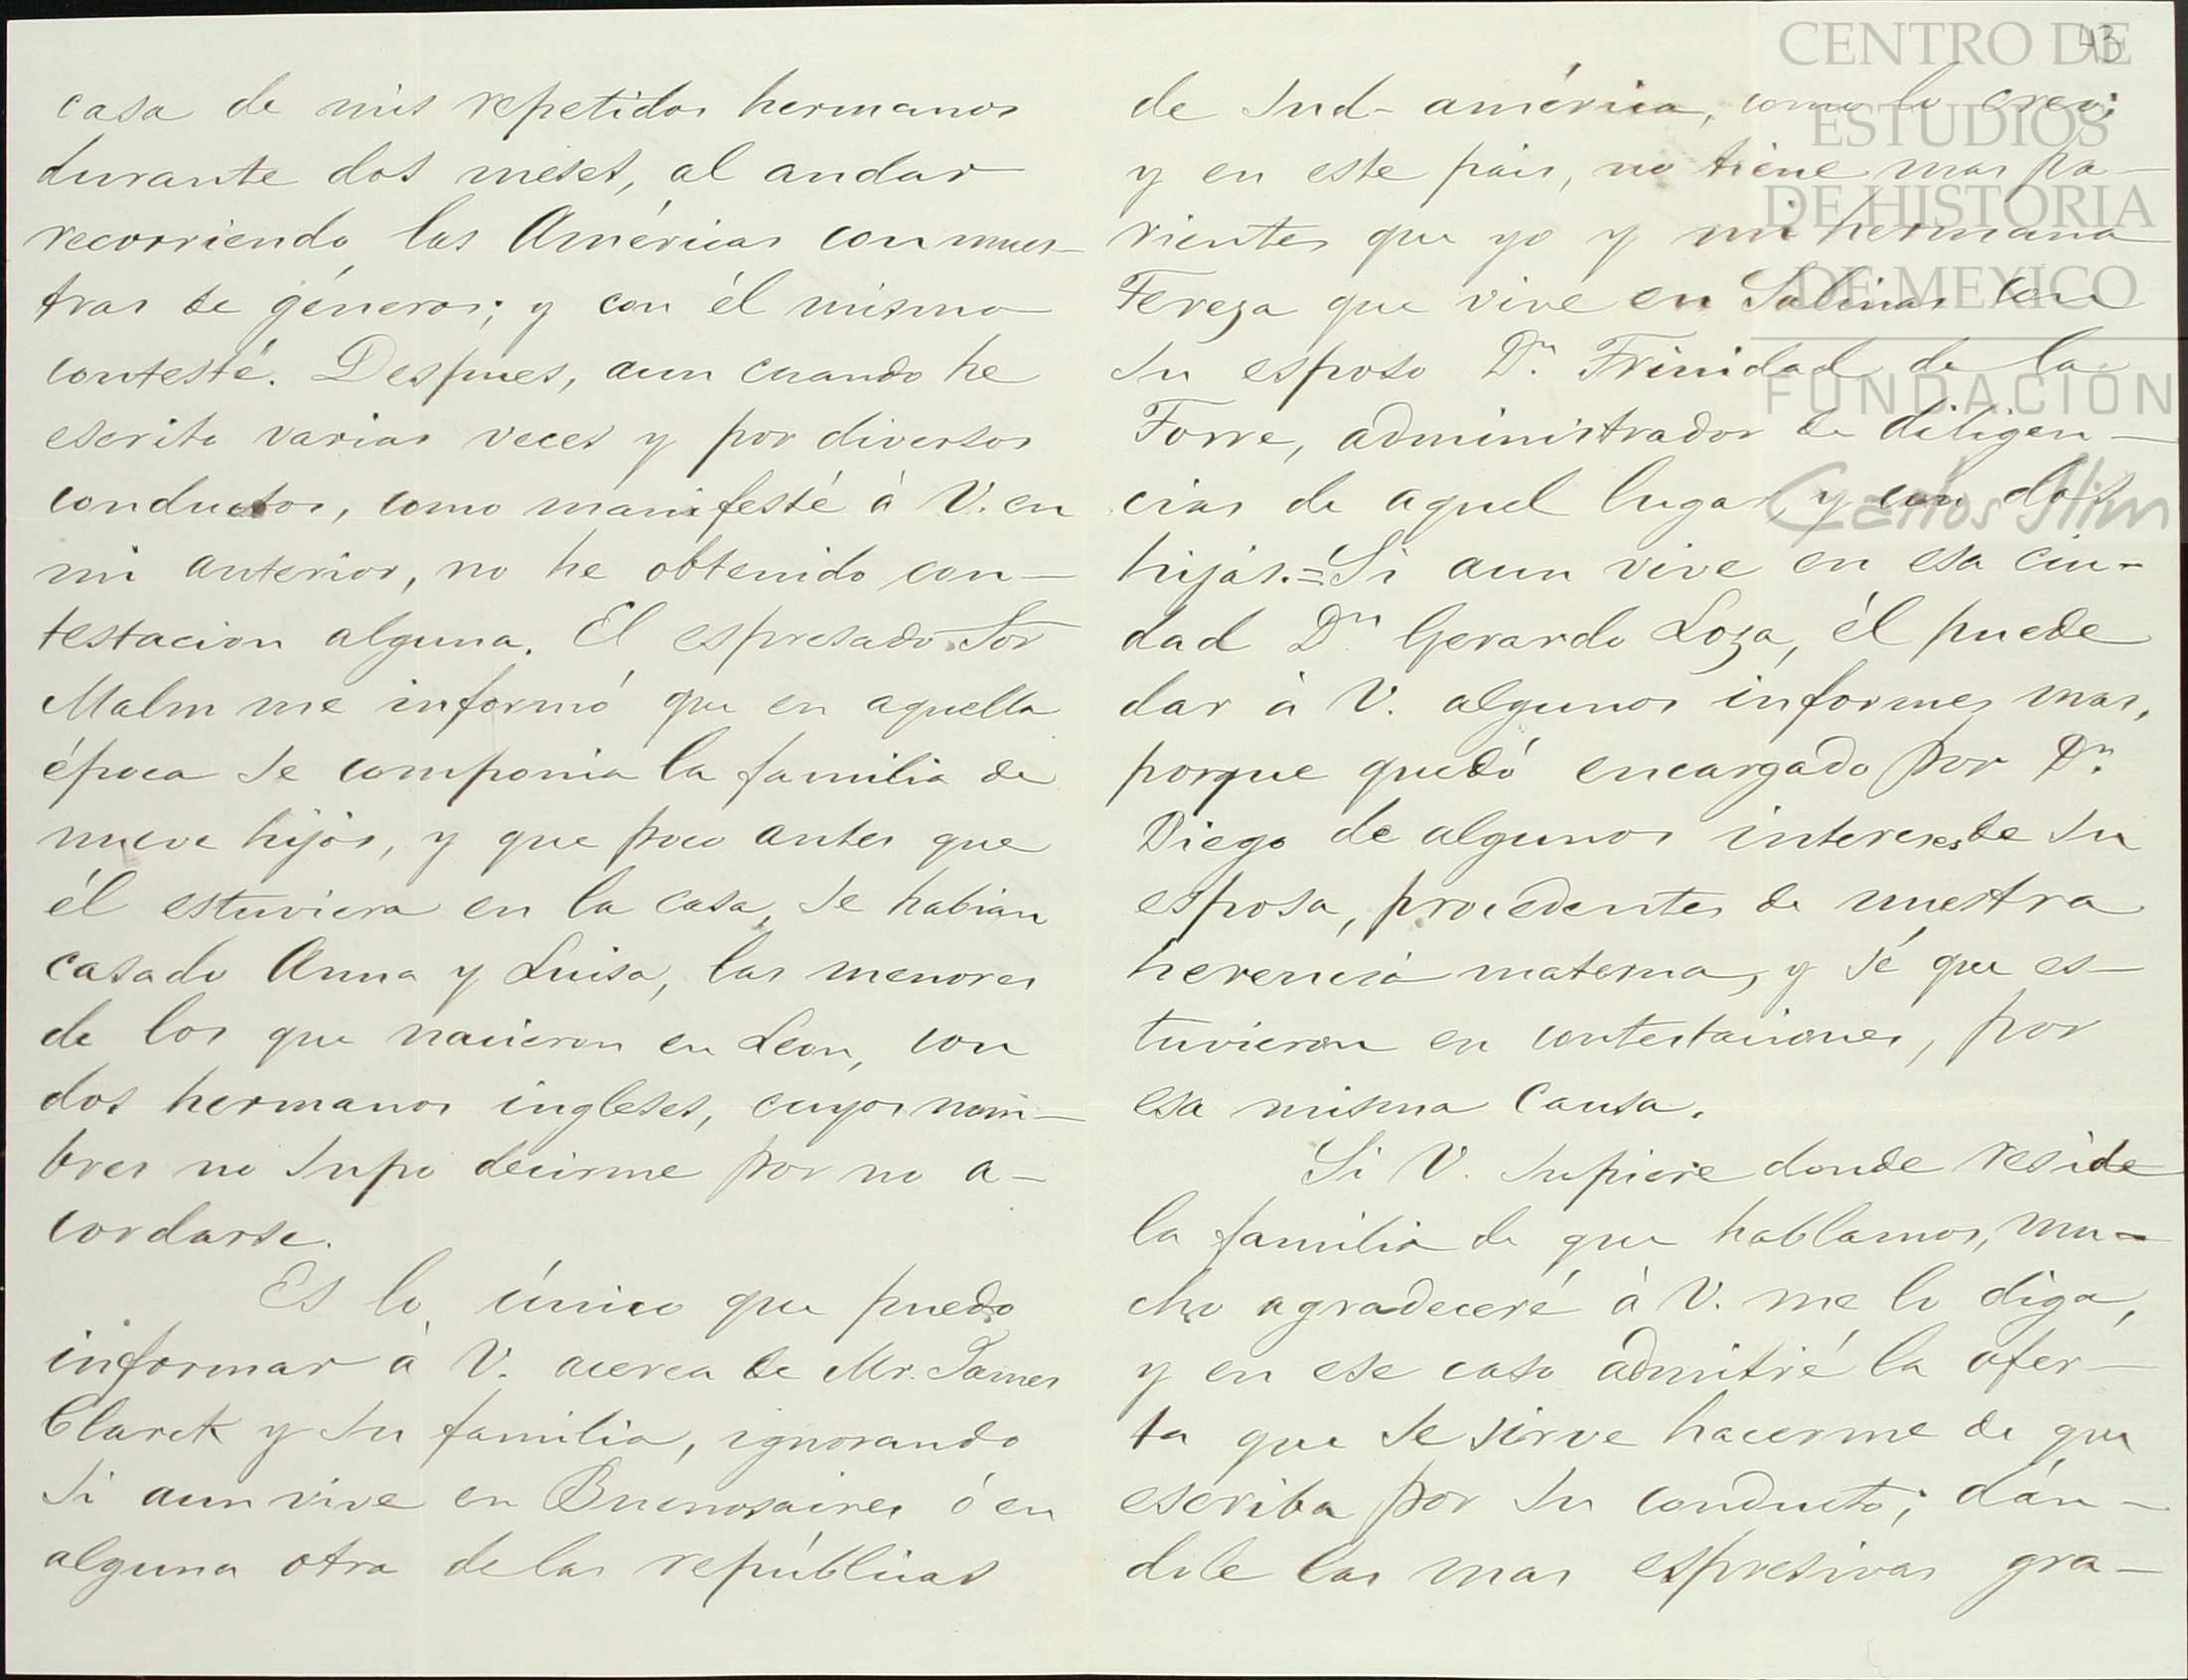 casa de mis repetidos hermanos
durante dos meses, al andar
recorriendo las Américas con mues-
tras de géneros; y con él mismo
contesté. Despues, aun cuando he
escrito varias veces y por diversos
conductos, como manifesté à V. en
mi anterior, no he obtenido con-
testacion alguna. El espresado Sor
Malm me informó que en aquella
época se componia la familia de
nueve hijos, y que poco antes que
él estuviera en la casa, se habian
casado Anna y Luisa, las menores
de los que nacieron en Leon, con
dos hermanos ingleses, cuyos nom-
bres no supo decirme por no a-
cordarse.
Es lo único que puedo
informar à V. acerca de Mr. James
Clarck y su familia, ignorando
si aun vive en Buenosaires ó en
alguna otra de las repúblicas
43
de Sud-américa, como lo creo;
y en este pais, no tiene mas pa-
rientes que yo y mi hermana
Tereza que vive en Salinas con
su esposo Dn. Trinidad de la
Torre, administrador de diligen-
cias de aquel lugar, y con dos
hijas.=Si aun vive en esa ciu-
dad Dn. Gerardo Loza, él puede
dar à V. algunos informes mas,
porque quedó encargado por Dn.
Diego de algunos intereses de su
esposa, procedentes de nuestra
herencia materna, y sé que es-
tuvieron en contestaciones, por
esa misma causa.
Si V. supiere donde reside
la familia de que hablamos, mu-
cho agradeceré à V. me lo diga,
y en ese caso admitiré la ofer-
ta que se sirve hacerme de que
escriba por su conducto; dán-
dole las mas espresivas gra-
CENTRO DE
ESTUDIOS
DE HISTORIA
DE MEXICO
FUNDACIÓN
Carlos Slim